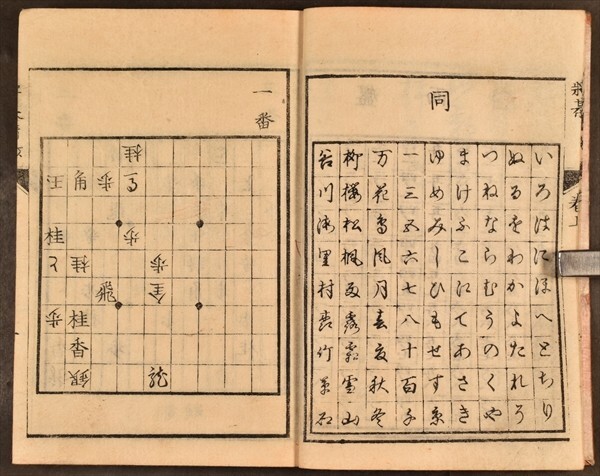 同
いろはにほへとちり
ぬるをわかよたれそ
つねならむうのくや
まけふこえてあさき
ゆめみしひもせす京
一三五六七八十百千
万花鳥風月春夏秋冬
柳櫻松楓雨露霜雪山
谷川海里村竹草石
一番
桂
王角歩馬
桂歩
と桂歩
飛金
歩桂
香
銀龍